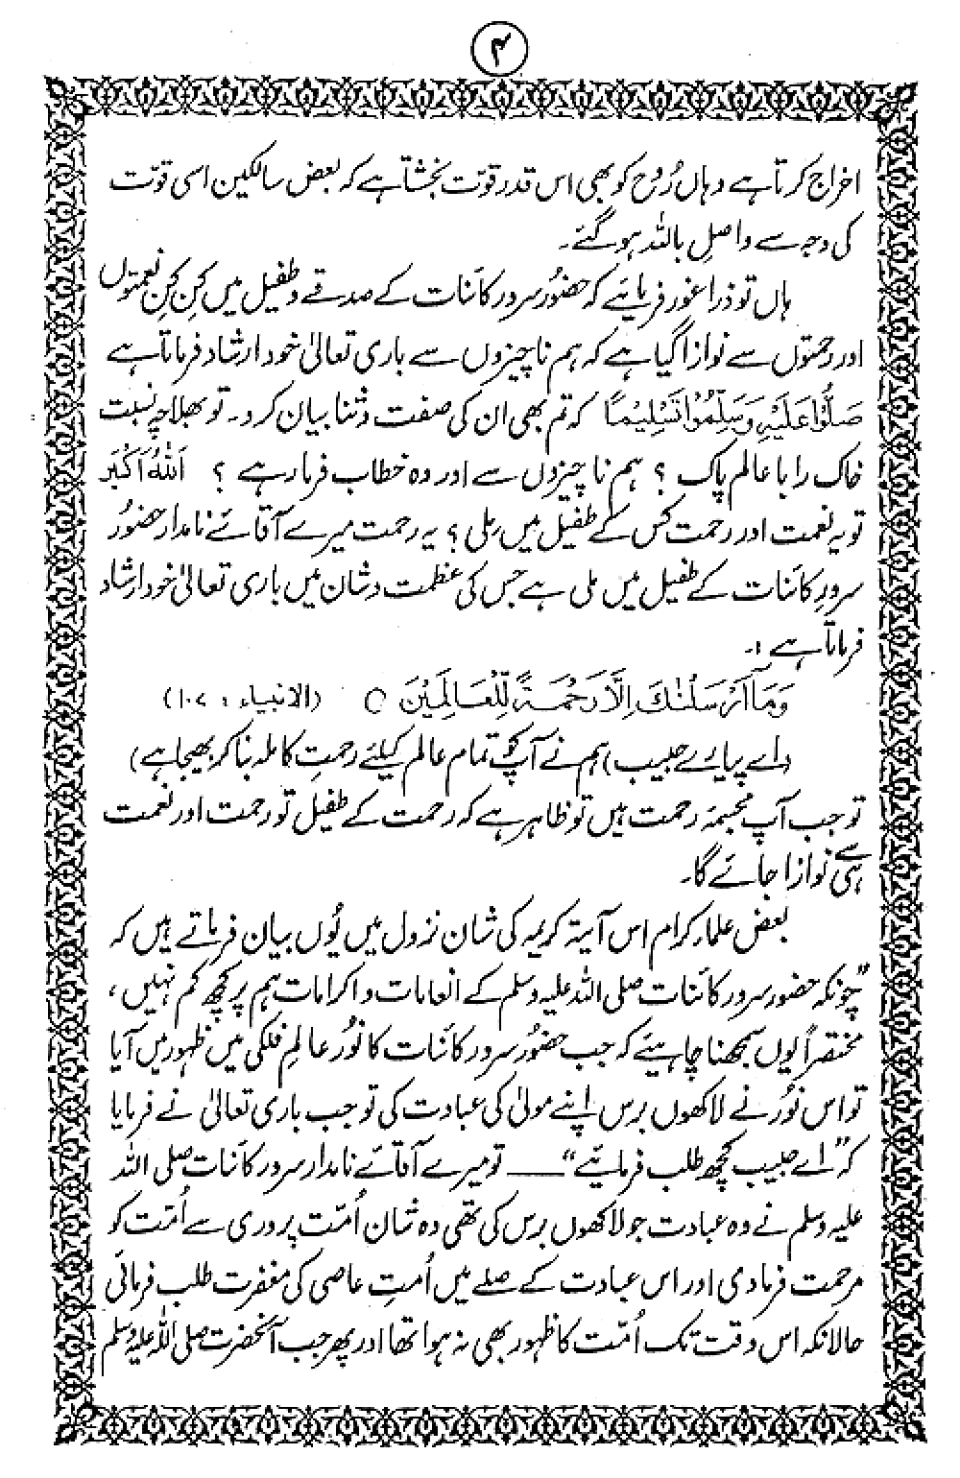 ۴
اخراج کرتا ہے وہاں رُوح کو بھی اس قدر قوت بخشتا ہے کہ بعض سالکین اسی قوت
کی وجہ سے واصلِ باللہ ہو گئے۔
ہاں تو ذرا غور فرمایئے کہ حضُور سرور کائنات کے صدقے و طفیل میں کِن کِن نعمتوں
اور رحمتوں سے نوازا گیا ہے کہ ہم ناچیزوں سے باری تعالیٰ خود ارشاد فرماتا ہے
صَلُّوْا عَلَيْهِ وَسَلِّمُوْا تَسْلِيْمًا کہ تم بھی ان کی صفت و ثنا بیان کرو۔ تو بھلا چہ نسبت
خاک را با عالم پاک ؟ ہم ناچیزوں سے اور وہ خطاب فرما رہے ؟ اَللّٰهُ اَكْبَر
تو یہ نعمت اور رحمت کس کے طفیل میں مِلی ؟ یہ رحمت میرے آقائے نامدار حضُور
سرورِ کائنات کے طفیل میں ملی ہے جس کی عظمت و شان میں باری تعالیٰ خود ارشاد
فرماتا ہے :۔
وَمَآ اَرْسَلْنٰكَ اِلَّا رَحْمَةً لِّلْعَالَمِيْنَ ○ (الانبیاء : ۱۰۷)
(اے پیارے حبیب) ہم نے آپ کو تمام عالم کیلئے رحمتِ کاملہ بنا کر بھیجا ہے)
تو جب آپ مجسمۂ رحمت ہیں تو ظاہر ہے کہ رحمت کے طفیل تو رحمت اور نعمت
ہی نوازا جائے گا۔
بعض علماء کرام اس آیۃ کریمہ کی شان نزول میں یُوں بیان فرماتے ہیں کہ
”چونکہ حضور سرور کائنات صلی اللہ علیہ وسلم کے انعامات و اکرامات ہم پر کچھ کم نہیں ،
مختصراً یوں سمجھنا چاہیئے کہ جب حضُور سرور کائنات کا نُور عالمِ فلکی میں ظہور میں آیا
تو اس نُور نے لاکھوں برس اپنے مولیٰ کی عبادت کی تو جب باری تعالیٰ نے فرمایا
کہ ”اے حبیب کچھ طلب فرمائیے“ —— تو میرے آقائے نامدار سرور کائنات صلی اللہ
علیہ وسلم نے وہ عبادت جو لاکھوں برس کی تھی وہ شان اُمّت پروری سے اُمّت کو
مرحمت فرما دی اور اس عبادت کے صلے میں اُمتِ عاصی کی مغفرت طلب فرمائی
حالانکہ اس وقت تک اُمّت کا ظہور بھی نہ ہوا تھا اور پھر جب آنحضرت صلی اللہ علیہ وسلم